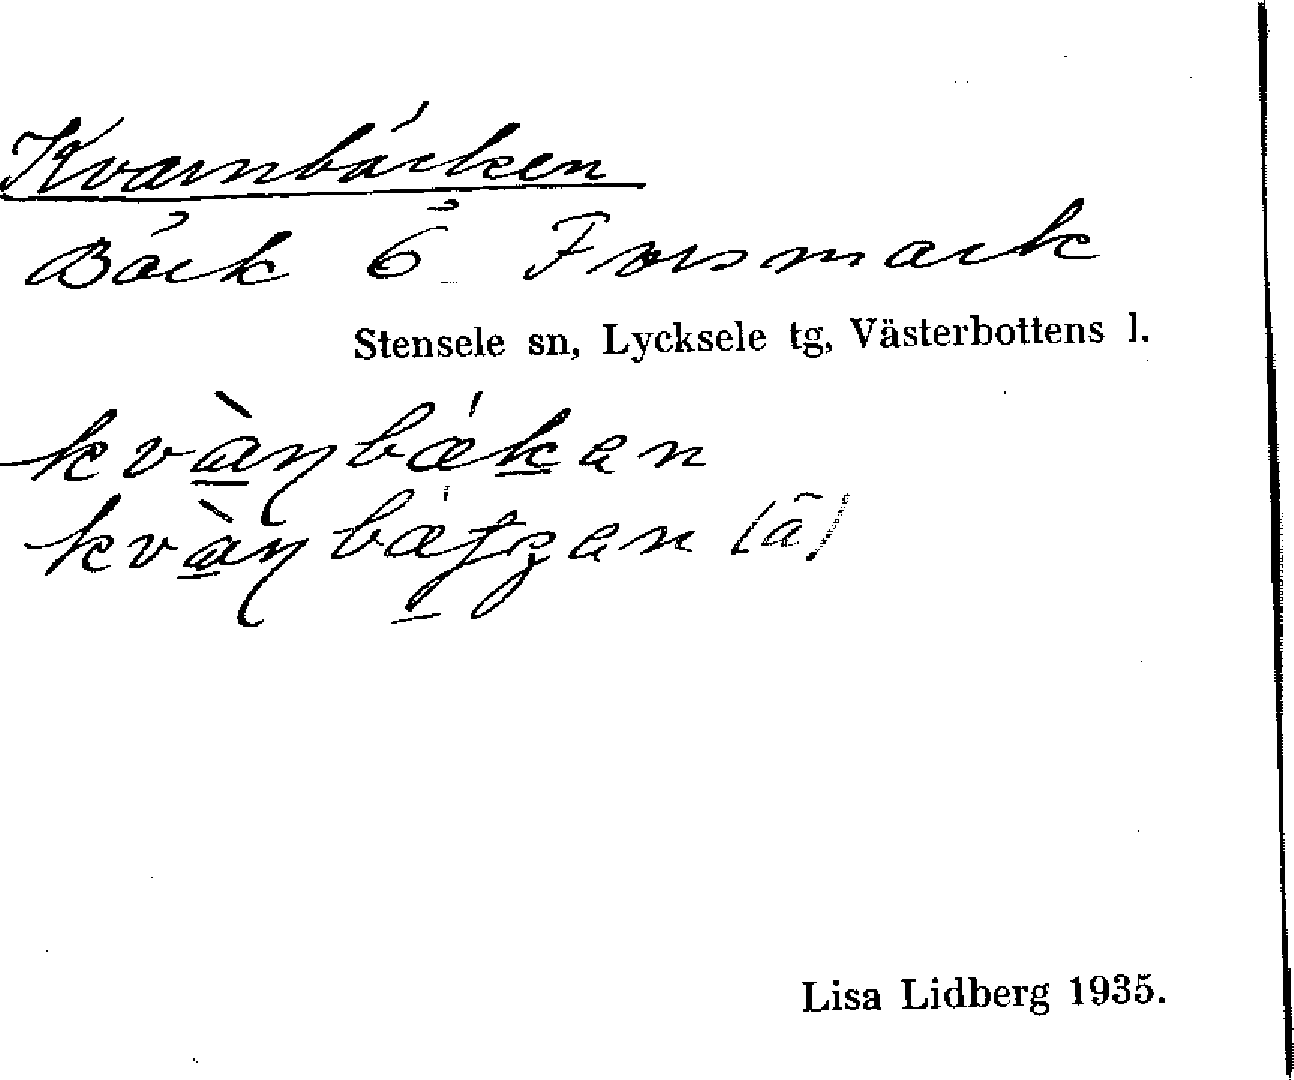 Kvarnbäcken
Bäck Ö Forsmark
Stensele sn, Lycksele tg, Västerbottens l.
kvàṇbækan
kvàṇbæʃʒan (ä)
Lisa Lidberg 1935.